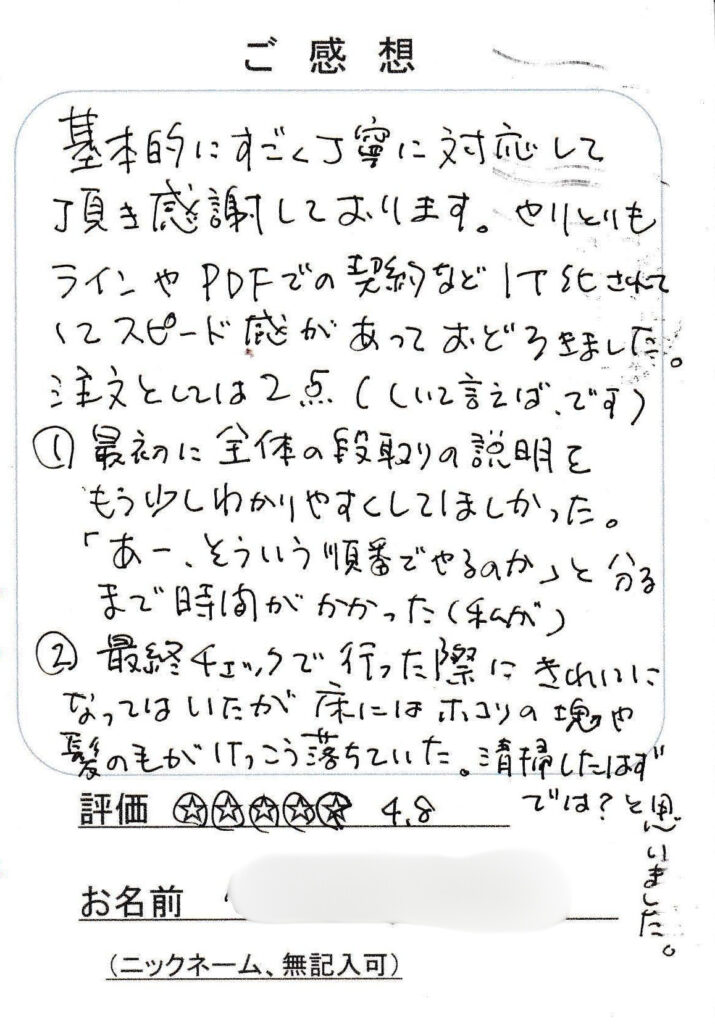 ご感想
基本的にすごく丁寧に対応して
頂き感謝しております。やりとりも
ラインやPDFでの契約などIT化されて
いてスピード感があっておどろきました。
注文としては2点(しいて言えば、です)
① 最初に全体の段取りの説明を
もう少しわかりやすくしてほしかった。
「あー、そういう順番でやるのか」と分る
まで時間がかかった(私が)
② 最終チェックで行った際にきれいに
なってはいたが床にはホコリの塊や
髪の毛がけっこう落ちていた。清掃したはず
では?と思いました。
評価 ☆☆☆☆☆ 4.8
お名前
(ニックネーム、無記入可)